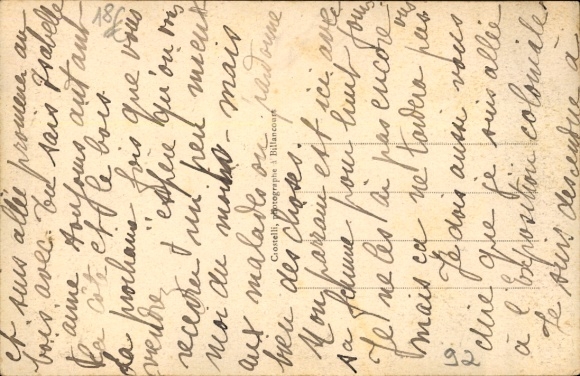 et suis allée promener au
bois avec. Tu sais Isabelle
t'aime toujours autant
la côte et le bois.
La prochaine fois que vous
viendrez j'espère qu'on vous
recevra un peu mieux
moi du moins - mais
aux malades on pardonne
bien des choses.
Mon parrain est ici avec
sa femme pour huit jours
Je ne les ai pas encore vus
mais ça ne tardera pas
Je dois aussi vous
dire que je suis allée
à l'Exposition coloniale.
Je suis descendue à
Crostelli, photographe à Billancourt
18
92